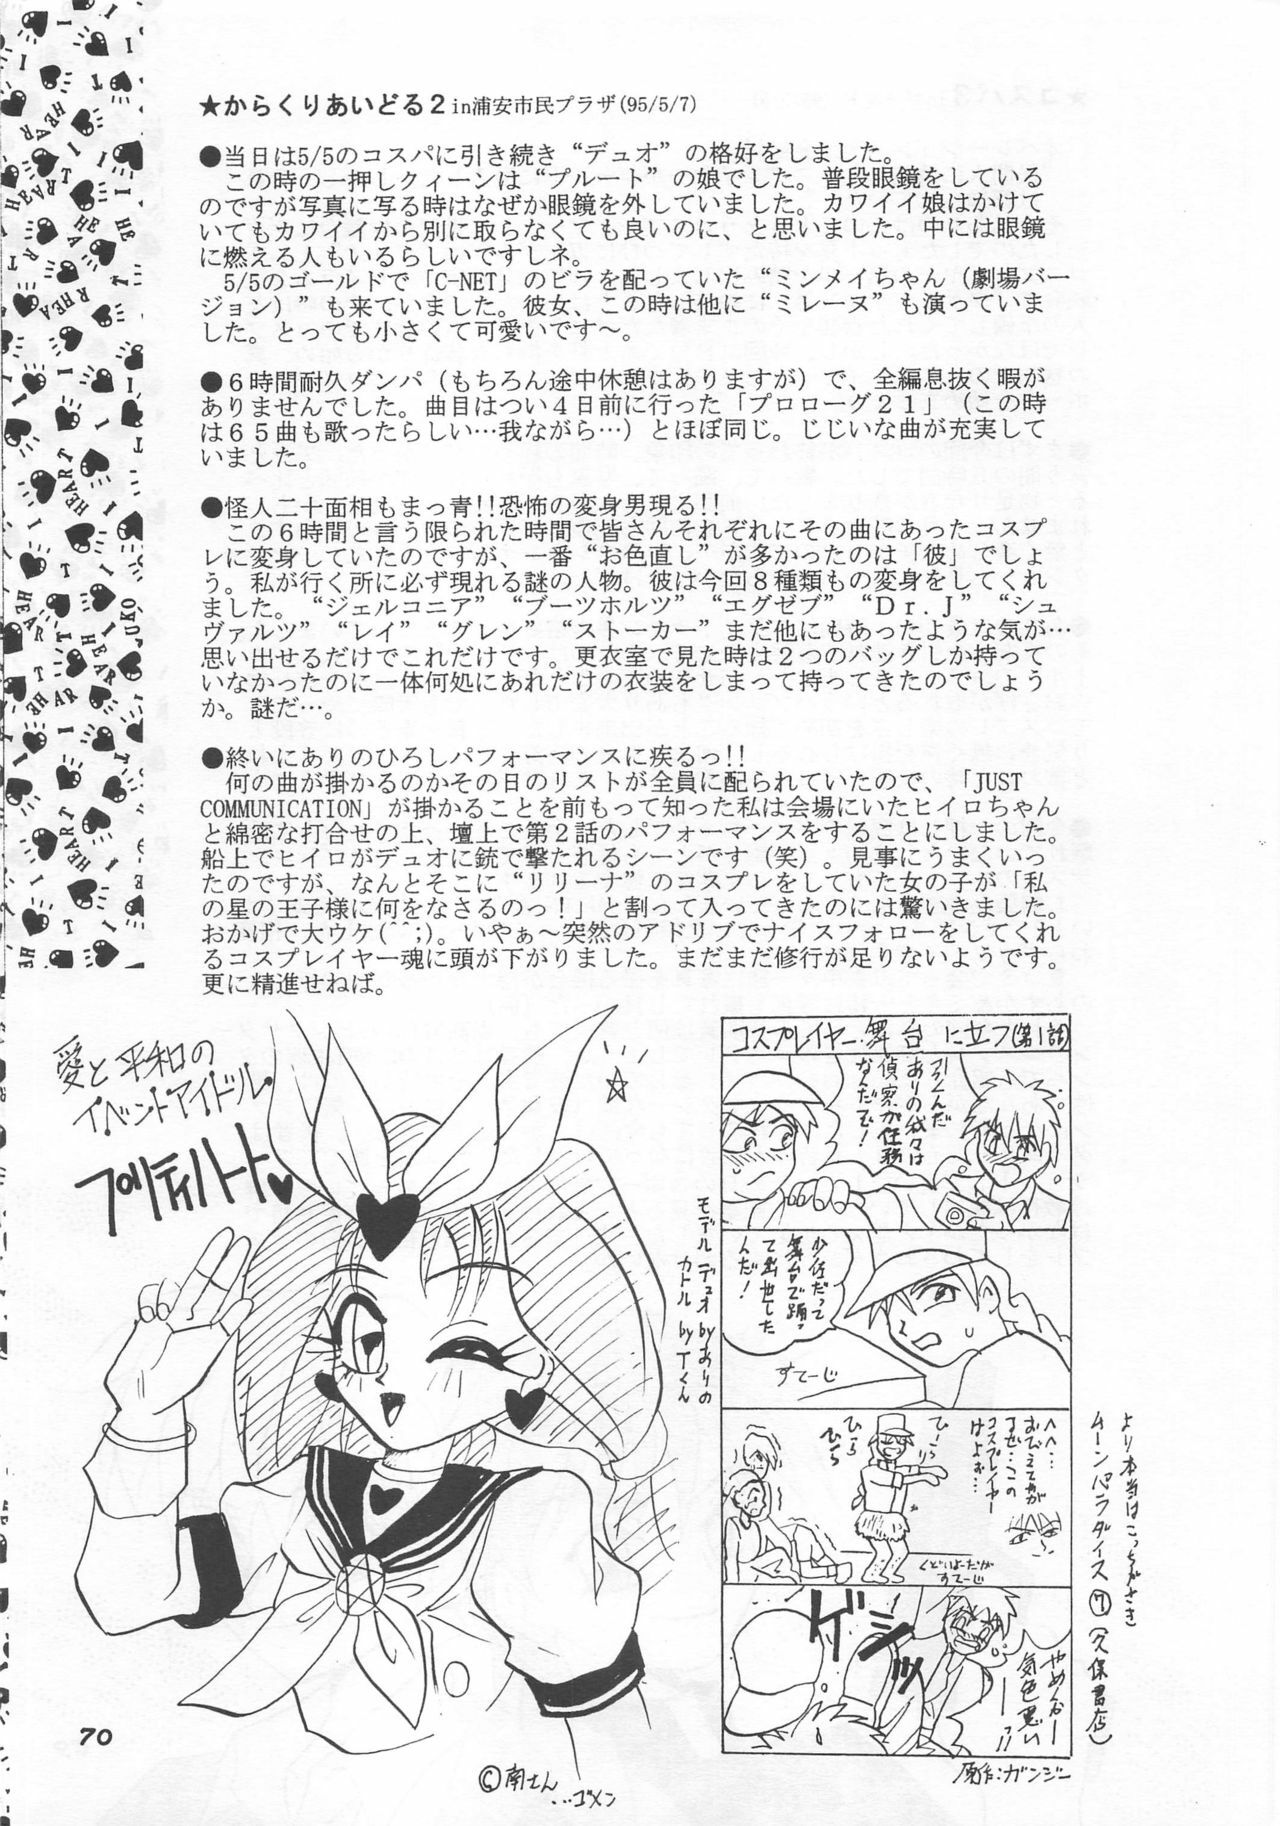 ★からくりあいどる２in浦安市民プラザ(95/5/7)
●当日は5/5のコスパに引き続き“デュオ”の格好をしました。
この時の一押しクィーンは“プルート”の娘でした。普段眼鏡をしている
のですが写真に写る時はなぜか眼鏡を外していました。カワイイ娘はかけて
いてもカワイイから別に取らなくても良いのに、と思いました。中には眼鏡
に燃える人もいるらしいですしネ。
5/5のゴールドで「C-NET」のビラを配っていた“ミンメイちゃん（劇場バー
ジョン）”も来ていました。彼女、この時は他に“ミレーヌ”も演っていま
した。とっても小さくて可愛いです～。
●６時間耐久ダンパ（もちろん途中休憩はありますが）で、全編息抜く暇が
ありませんでした。曲目はつい４日前に行った「プロローグ２１」（この時
は６５曲も歌ったらしい…我ながら…）とほぼ同じ。じじいな曲が充実して
いました。
●怪人二十面相もまっ青!!恐怖の変身男現る!!
この６時間と言う限られた時間で皆さんそれぞれにその曲にあったコスプ
レに変身していたのですが、一番“お色直し”が多かったのは「彼」でしょ
う。私が行く所に必ず現れる謎の人物。彼は今回８種類もの変身をしてくれ
ました。“ジェルコニア”“ブーツホルツ”“エグゼブ”“Ｄｒ．Ｊ”“シュ
ヴァルツ”“レイ”“グレン”“ストーカー”まだ他にもあったような気が…
思い出せるだけでこれだけです。更衣室で見た時は２つのバッグしか持って
いなかったのに一体何処にあれだけの衣装をしまって持ってきたのでしょう
か。謎だ…。
●終いにありのひろしパフォーマンスに疾るっ!!
何の曲が掛かるのかその日のリストが全員に配られていたので、「JUST
COMMUNICATION」が掛かることを前もって知った私は会場にいたヒイロちゃん
と綿密な打合せの上、壇上で第２話のパフォーマンスをすることにしました。
船上でヒイロがデュオに銃で撃たれるシーンです（笑）。見事にうまくいっ
たのですが、なんとそこに“リリーナ”のコスプレをしていた女の子が「私
の星の王子様に何をなさるのっ！」と割って入ってきたのには驚いきました。
おかげで大ウケ(^^;)。いやぁ～突然のアドリブでナイスフォローをしてくれ
るコスプレイヤー魂に頭が下がりました。まだまだ修行が足りないようです。
更に精進せねば。
愛と平和の
イベントアイドル
プリティハート♥
コスプレイヤー舞台に立つ(第1話)
ありの我々は
偵察が任務
なんだぞ！
少佐だって
舞台で踊っ
て
んだ！
すてーじ
モデル デュオ byありの
カトル by Tくん
へへ…
この
コスプレイヤー
けよぉ…
ひーらり
ひらひら
すてーじ
ゲシッ
やめんかー
気色悪い
ーっ!!
原作:ガンジー
より本当はこっちがさき
ムーンパラダイス⑦（久保書店）
©南さん
…ゴメン
70